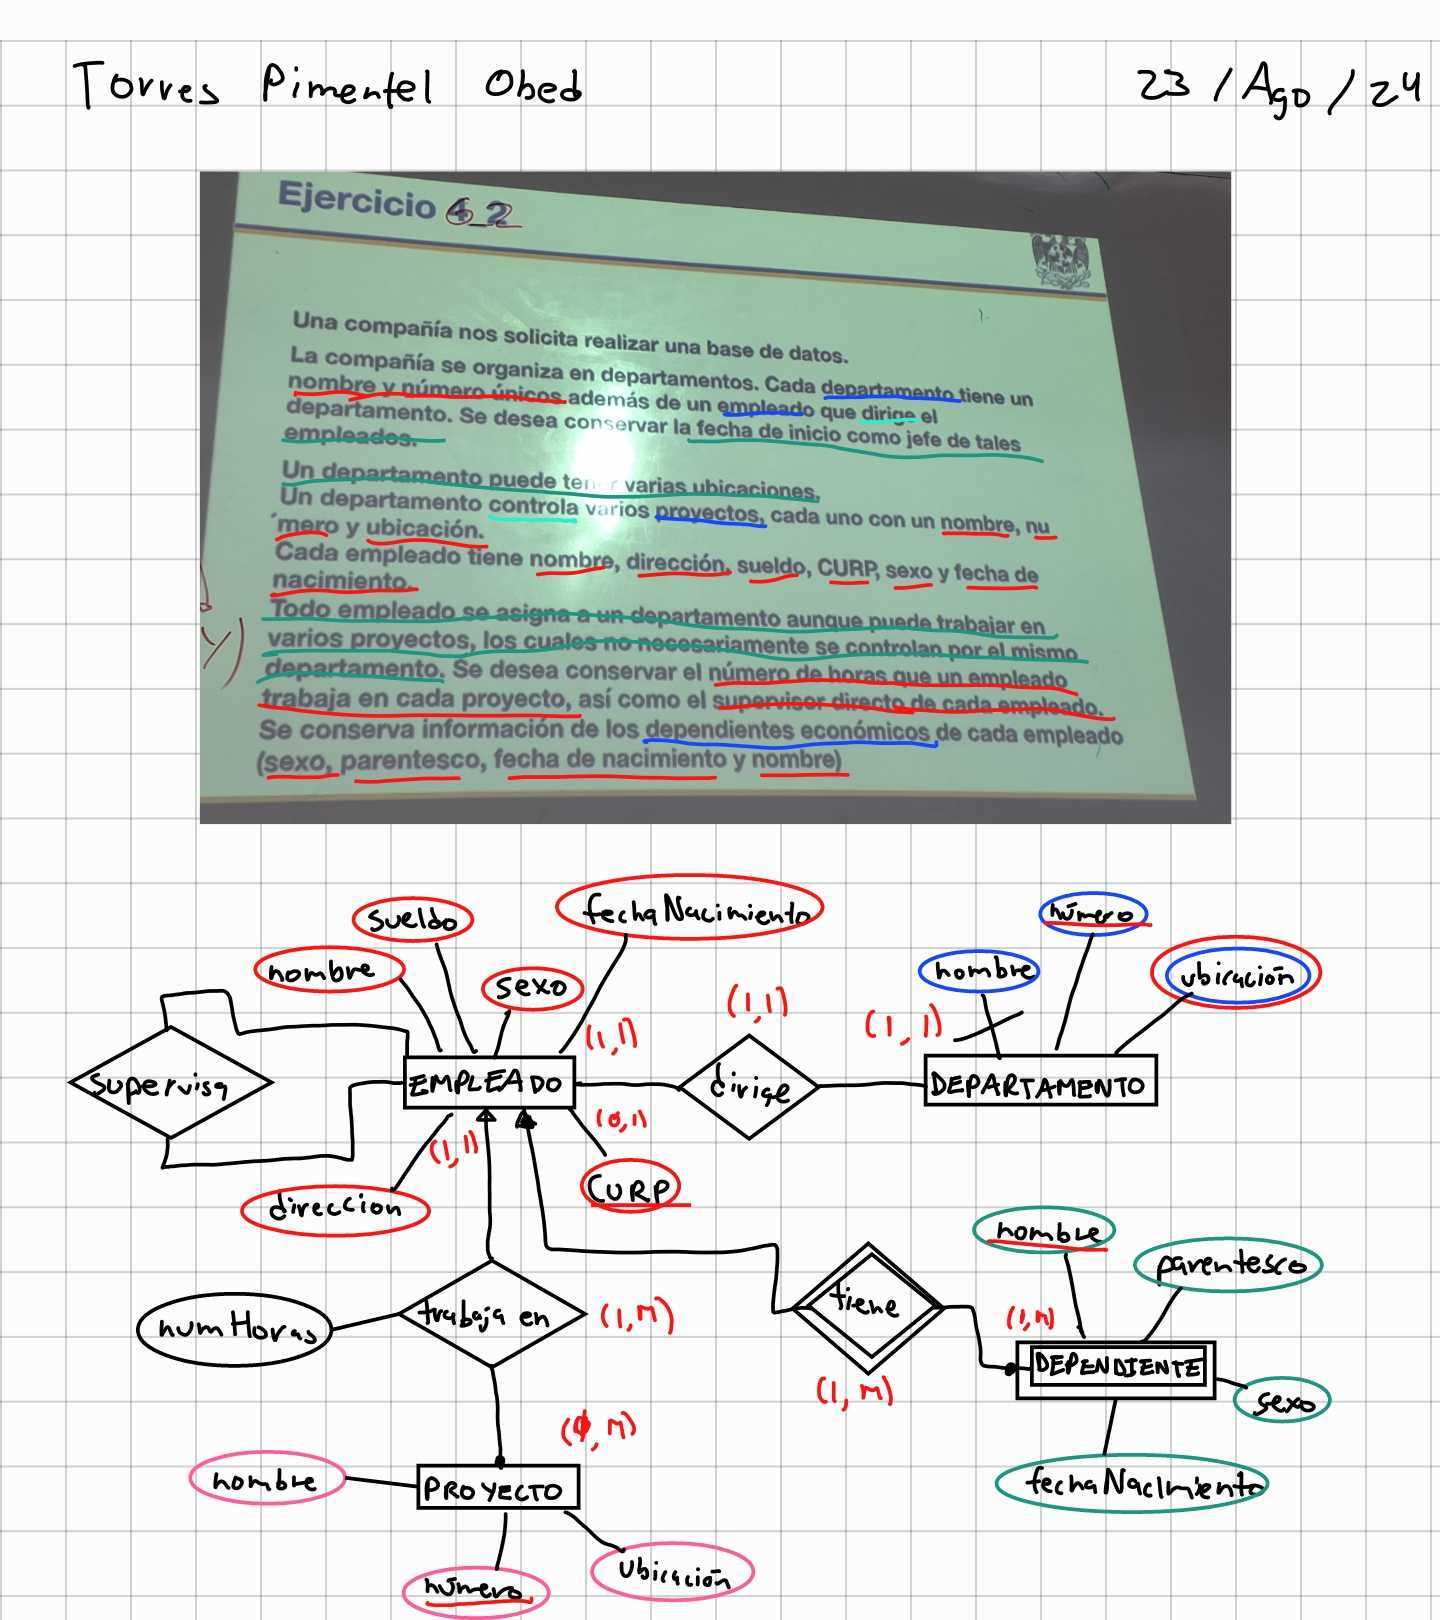 Torres Pimentel Obed 23/Ago/24
Ejercicio 6_2
Una compañía nos solicita realizar una base de datos.
La compañía se organiza en departamentos. Cada departamento tiene un
nombre y número únicos además de un empleado que dirige el
departamento. Se desea conservar la fecha de inicio como jefe de tales
empleados.
Un departamento puede tener varias ubicaciones.
Un departamento controla varios proyectos, cada uno con un nombre, nu
´mero y ubicación.
Cada empleado tiene nombre, dirección, sueldo, CURP, sexo y fecha de
nacimiento.
Todo empleado se asigna a un departamento aunque puede trabajar en
varios proyectos, los cuales no necesariamente se controlan por el mismo
departamento. Se desea conservar el número de horas que un empleado
trabaja en cada proyecto, así como el supervisor directo de cada empleado.
Se conserva información de los dependientes económicos de cada empleado
(sexo, parentesco, fecha de nacimiento y nombre)
y)
sueldo
fechaNacimiento
número
nombre
sexo
nombre
ubicación
(1,1)
(1,1)
(1,1)
supervisa
EMPLEADO
dirige
DEPARTAMENTO
(1,1)
(0,1)
direccion
CURP
nombre
parentesco
numHoras
trabaja en
(1,M)
tiene
(1,M)
DEPENDIENTE
(1,M)
sexo
(0,M)
nombre
PROYECTO
fechaNacimiento
número
ubicación